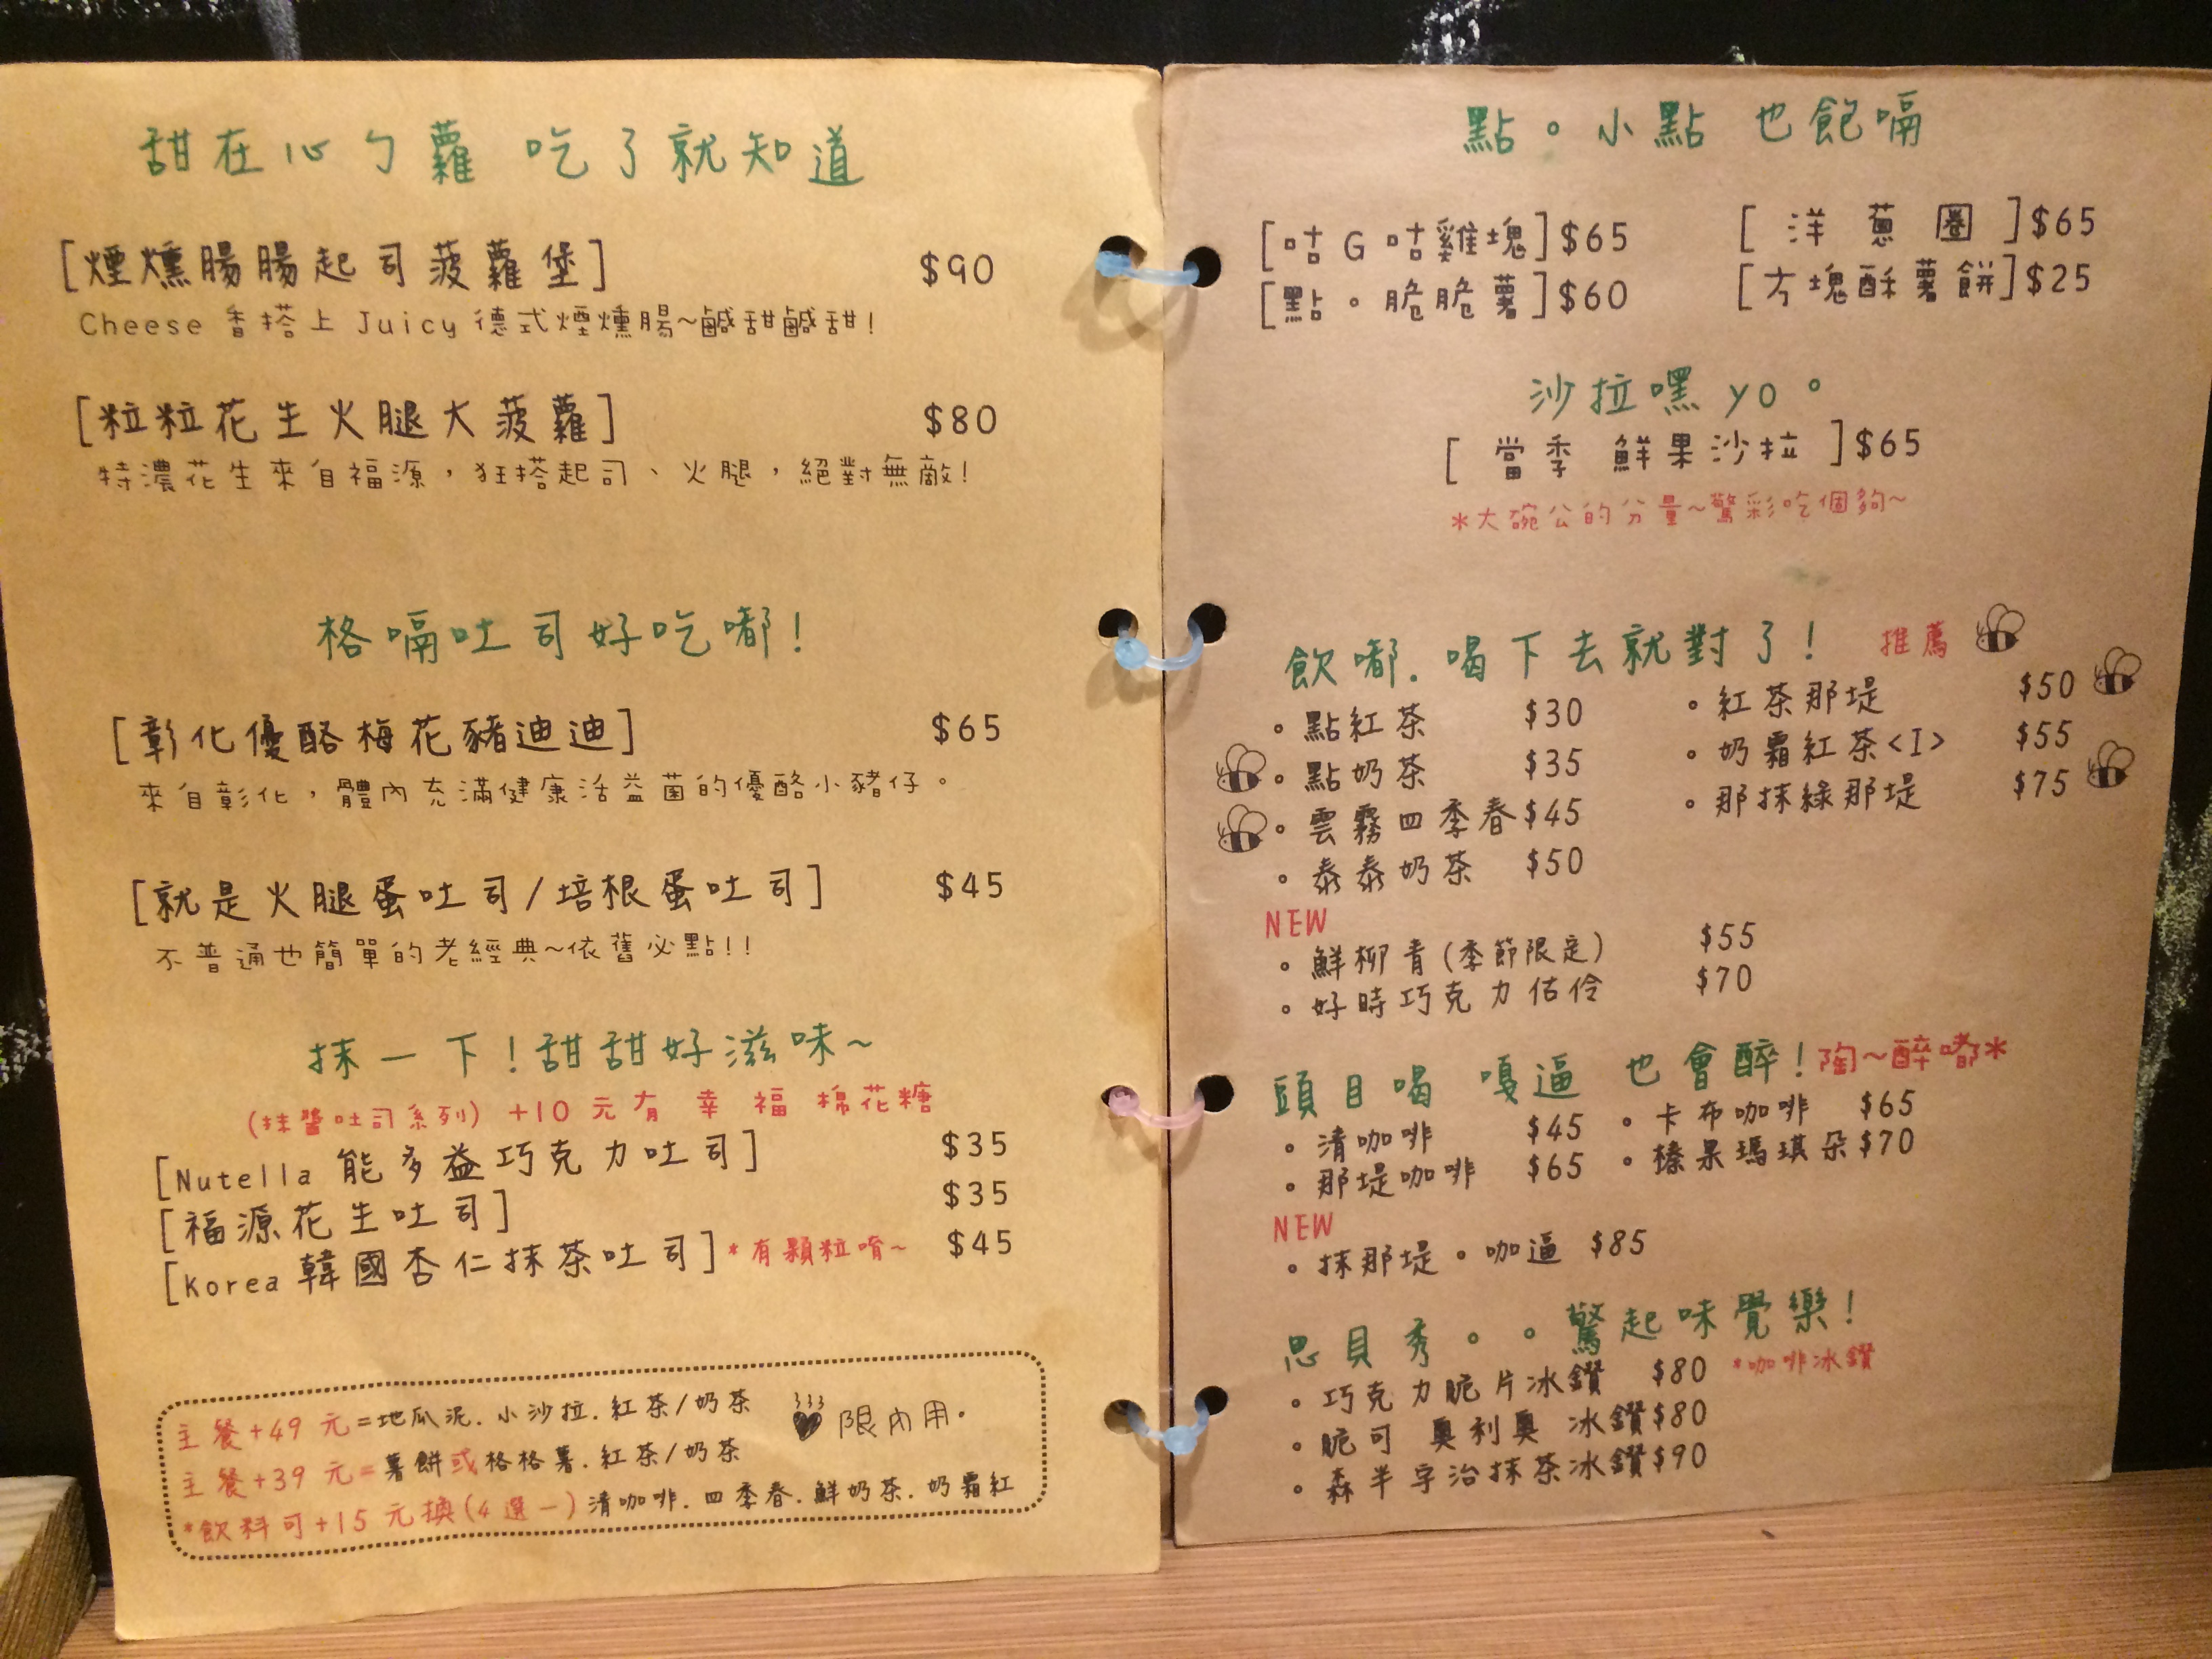 甜在心ㄅ蘿 吃了就知道
[煙燻腸腸起司菠蘿堡] $90
Cheese 香搭上 Juicy 德式煙燻腸~鹹甜鹹甜!
[粒粒花生火腿大菠蘿] $80
特濃花生來自福源，狂搭起司、火腿，絕對無敵!
格嗝吐司好吃嘟!
[彰化優酪梅花豬迪迪] $65
來自彰化，體內充滿健康活益菌的優酪小豬仔。
[就是火腿蛋吐司/培根蛋吐司] $45
不普通也簡單的老經典~依舊必點!!
抹一下!甜甜好滋味~
(抹醬吐司系列) +10 元有 幸 福 棉花糖
[Nutella 能多益巧克力吐司] $35
[福源花生吐司] $35
[Korea 韓國杏仁抹茶吐司] *有顆粒唷~ $45
主餐+49 元=地瓜泥.小沙拉.紅茶/奶茶 限內用.
主餐+39 元=薯餅或格格薯.紅茶/奶茶
*飲料可+15 元換(4 選一)清咖啡.四季春.鮮奶茶.奶霜紅
點。小點 也飽嗝
[咕 G 咕雞塊]$65 [洋蔥圈]$65
[點。脆脆薯]$60 [方塊酥薯餅]$25
沙拉嘿 yo。
[當季 鮮果沙拉]$65
*大碗公的分量~驚彩吃個夠~
飲嘟.喝下去就對了! 推薦
。點紅茶 $30 。紅茶那堤 $50
。點奶茶 $35 。奶霜紅茶<I> $55
。雲霧四季春$45 。那抹綠那堤 $75
。泰泰奶茶 $50
NEW
。鮮柳青(季節限定) $55
。好時巧克力估伶 $70
頭目喝 嘎逼 也會醉!陶~醉嘟*
。清咖啡 $45 。卡布咖啡 $65
。那堤咖啡 $65 。榛果瑪琪朵$70
NEW
。抹那堤。咖逼 $85
思貝秀。。驚起味覺樂!
。巧克力脆片冰鑽 $80 *咖啡冰鑽
。脆可 奧利奧 冰鑽$80
。森半宇治抹茶冰鑽$90